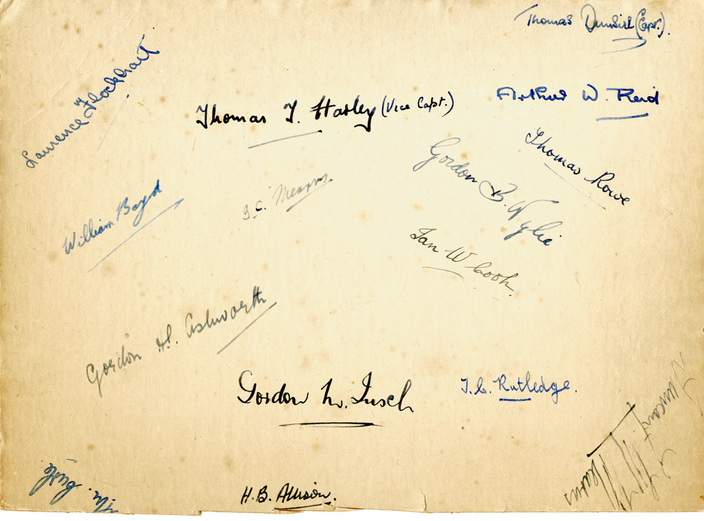 Thomas Dunsire (Capt.).
Laurence Flockhart
Thomas T. Hastey (Vice Capt.)
Arthur W. Reid
Thomas Rowe
Gordon B. Wylie
William Boyd
J.C. Mearns
Ian W Cook.
Gordon H. Ashworth
Gordon W. Insch
J.C. Rutledge.
H.B. Allison.